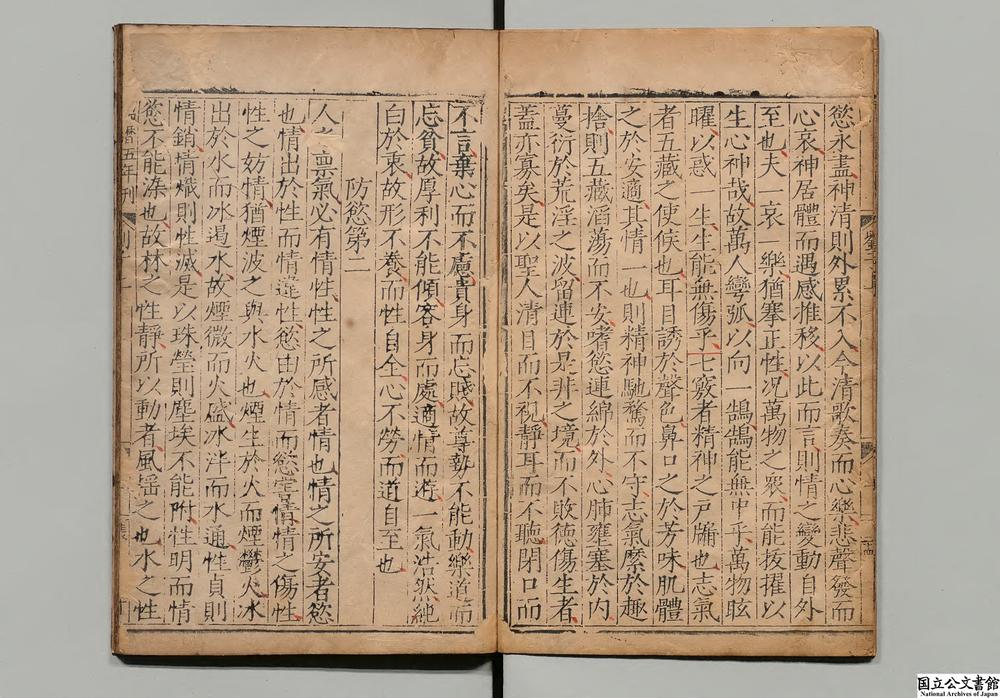 慾永盡神清則外累不入今清歌奏而心樂悲聲發而
心哀神居體而遇感推移以此而言則情之變動自外
至也夫一哀一樂猶搴正性况萬物之眾而能拔擢以
生心神哉故萬人彎弧以向一鵠鵠能無中乎萬物眩
曜以惑一生生能無傷乎七竅者精神之戶牖也志氣
者五藏之使候也耳目誘於聲色鼻口之於芳味肌體
之於安適其情一也則精神馳騖而不守志氣縻於趣
捨則五藏滔蕩而不安嗜慾連綿於外心腑壅塞於內
蔓衍於荒淫之波留連於是非之境而不敗德傷生者
蓋亦寡矣是以聖人清目而不視靜耳而不聽閉口而
不言棄心而不慮貴身而忘賤故尊勢不能動樂道而
忘貧故厚利不能傾容身而處適情而遊一氣浩然純
白於衷故形不養而性自全心不勞而道自至也
防慾第二
人之禀氣必有情性性之所感者情也情之所安者慾
也情出於性而情違性慾由於情而慾害情情之傷性
性之妨情猶煙波之與水火也煙生於火而煙鬱火冰
出於水而冰遏水故煙微而火盛冰泮而水通性貞則
情銷情熾則性滅是以珠瑩則塵埃不能附性明而情
慾不能染也故林之性靜所以動者風搖之也水之性
五年刊
國立公文書館
National Archives of Japan